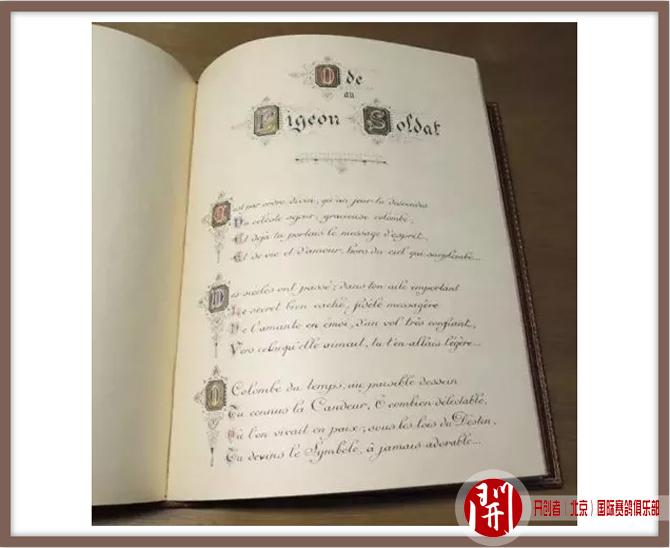 Ode
au
Pigeon Soldat
C'est par ordre divin, qu'un jour tu descendis
Du céleste séjour, gracieuse colombe,
Et déjà tu portais le message d'esprit,
Et de vie et d'amour, hors du ciel qui surplombe...
Des siècles ont passé; dans ton aile important
Le secret bien caché, fidèle messagère
De l'amante en émoi, d'un vol très confiant,
Vers celui qu'elle aimait, tu t'en allais légère...
O Colombe du temps, au paisible dessein
Tu connus la Candeur, Ô combien délectable,
Où l'on vivait en paix; sous les lois du Destin,
Tu devins le Symbole, à jamais adorable...
開 开创者（北京）国际赛鸽俱乐部